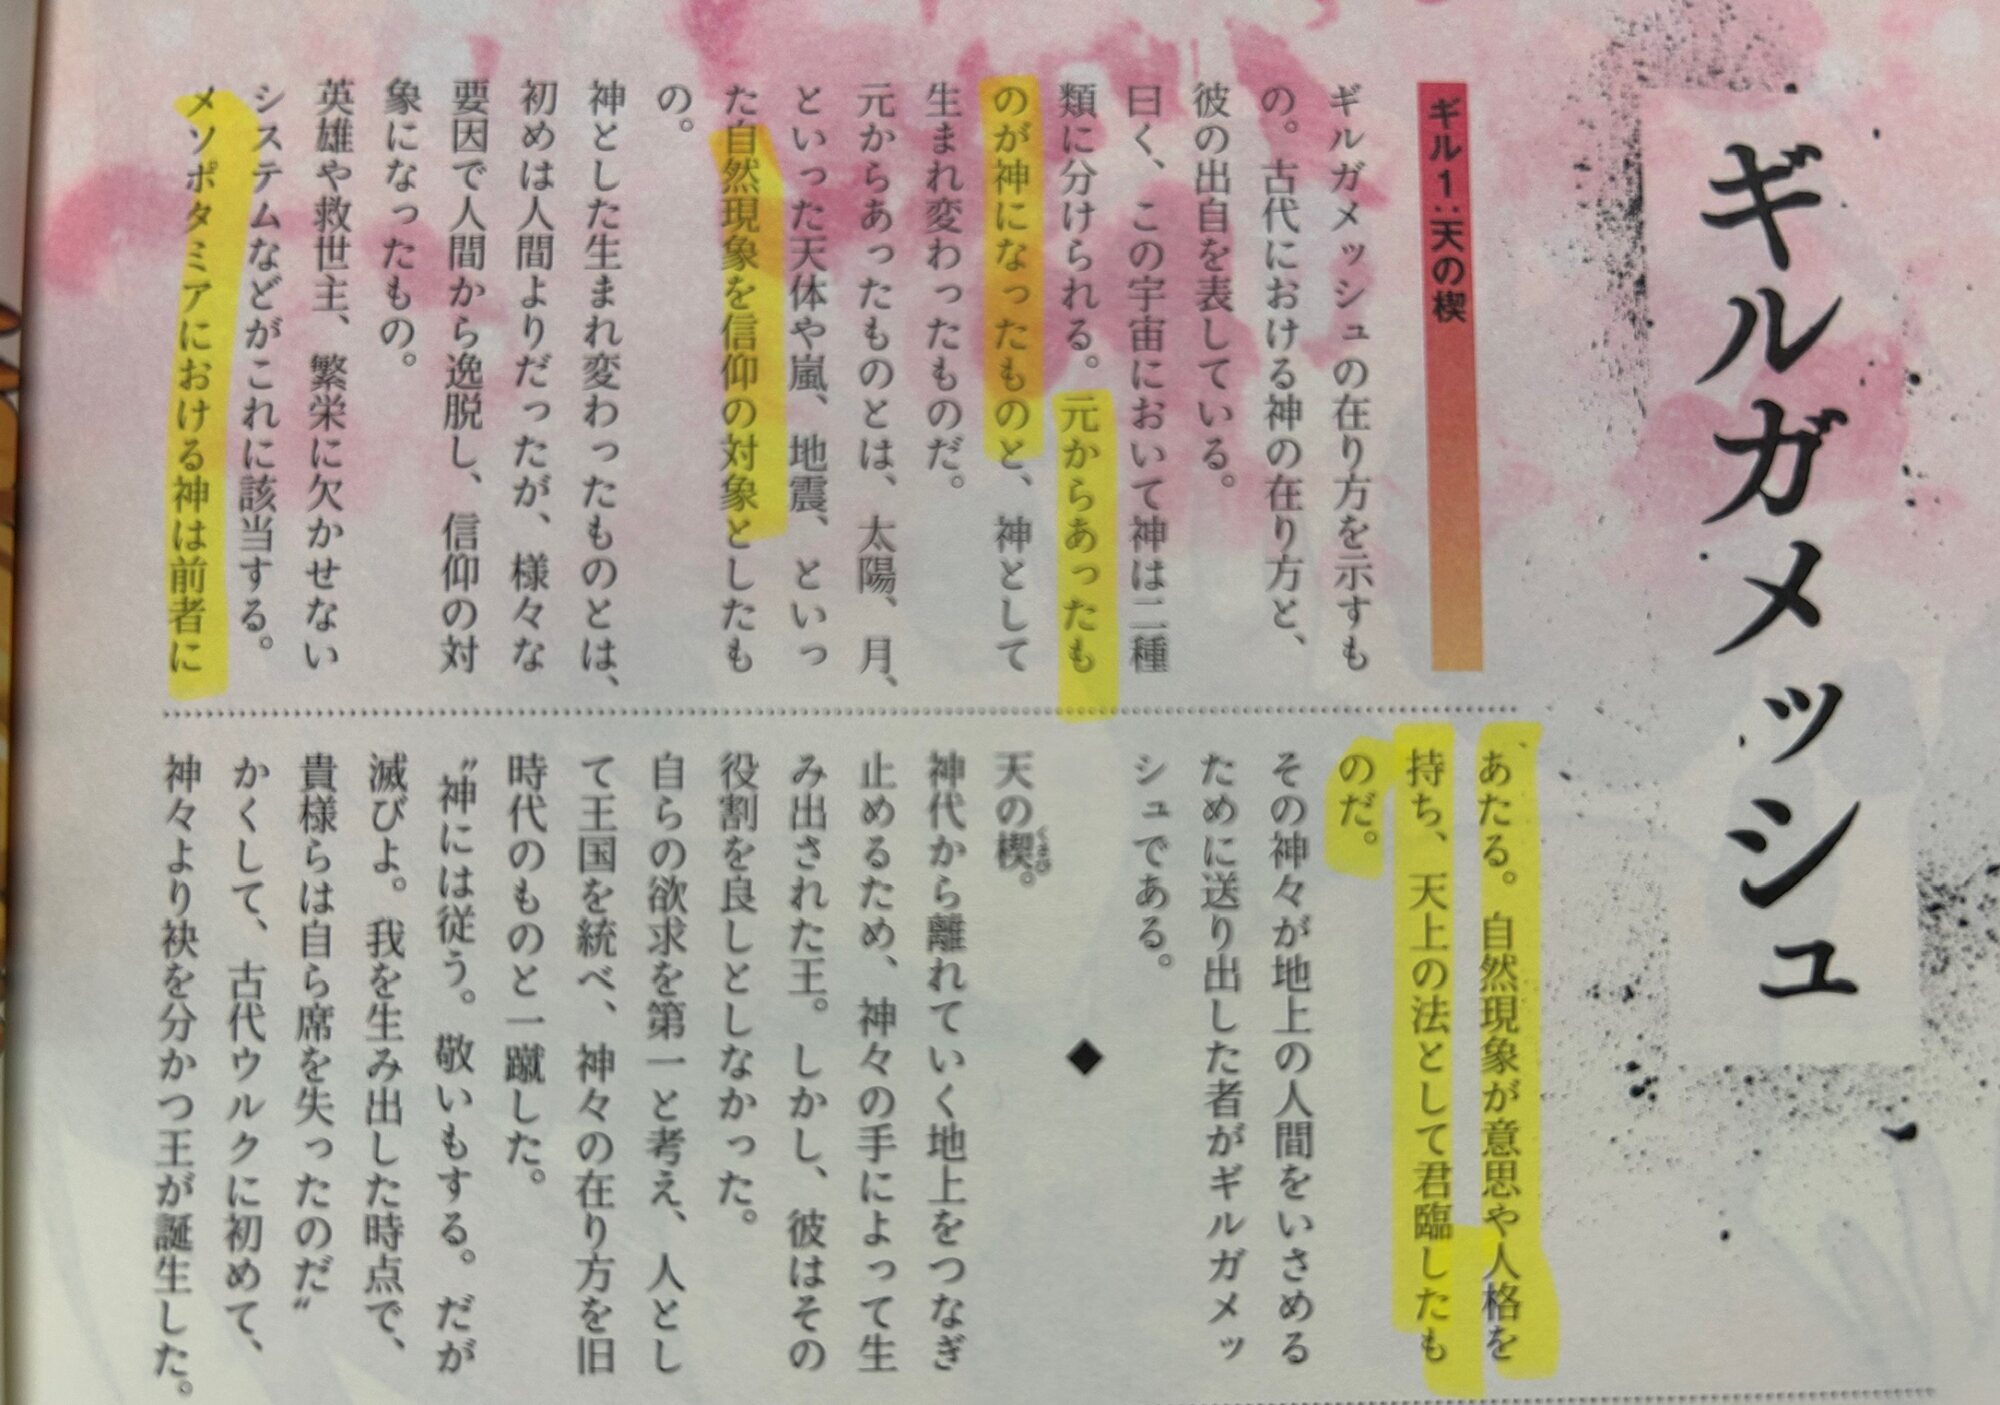 ギルガメッシュ
ギル1：天の楔
ギルガメッシュの在り方を示すも
の。古代における神の在り方と、
彼の出自を表している。
曰く、この宇宙において神は二種
類に分けられる。元からあったも
のが神になったものと、神として
生まれ変わったものだ。
元からあったものとは、太陽、月、
といった天体や嵐、地震、といっ
た自然現象を信仰の対象としたも
の。
神とした生まれ変わったものとは、
初めは人間よりだったが、様々な
要因で人間から逸脱し、信仰の対
象になったもの。
英雄や救世主、繁栄に欠かせない
システムなどがこれに該当する。
メソポタミアにおける神は前者に
あたる。自然現象が意思や人格を
持ち、天上の法として君臨したも
のだ。
その神々が地上の人間をいさめる
ために送り出した者がギルガメッ
シュである。
◆
天の楔。
くさび
神代から離れていく地上をつなぎ
止めるため、神々の手によって生
み出された王。しかし、彼はその
役割を良しとしなかった。
自らの欲求を第一と考え、人とし
て王国を統べ、神々の在り方を旧
時代のものと一蹴した。
〝神には従う。敬いもする。だが
滅びよ。我を生み出した時点で、
貴様らは自ら席を失ったのだ〟
かくして、古代ウルクに初めて、
神々より袂を分かつ王が誕生した。